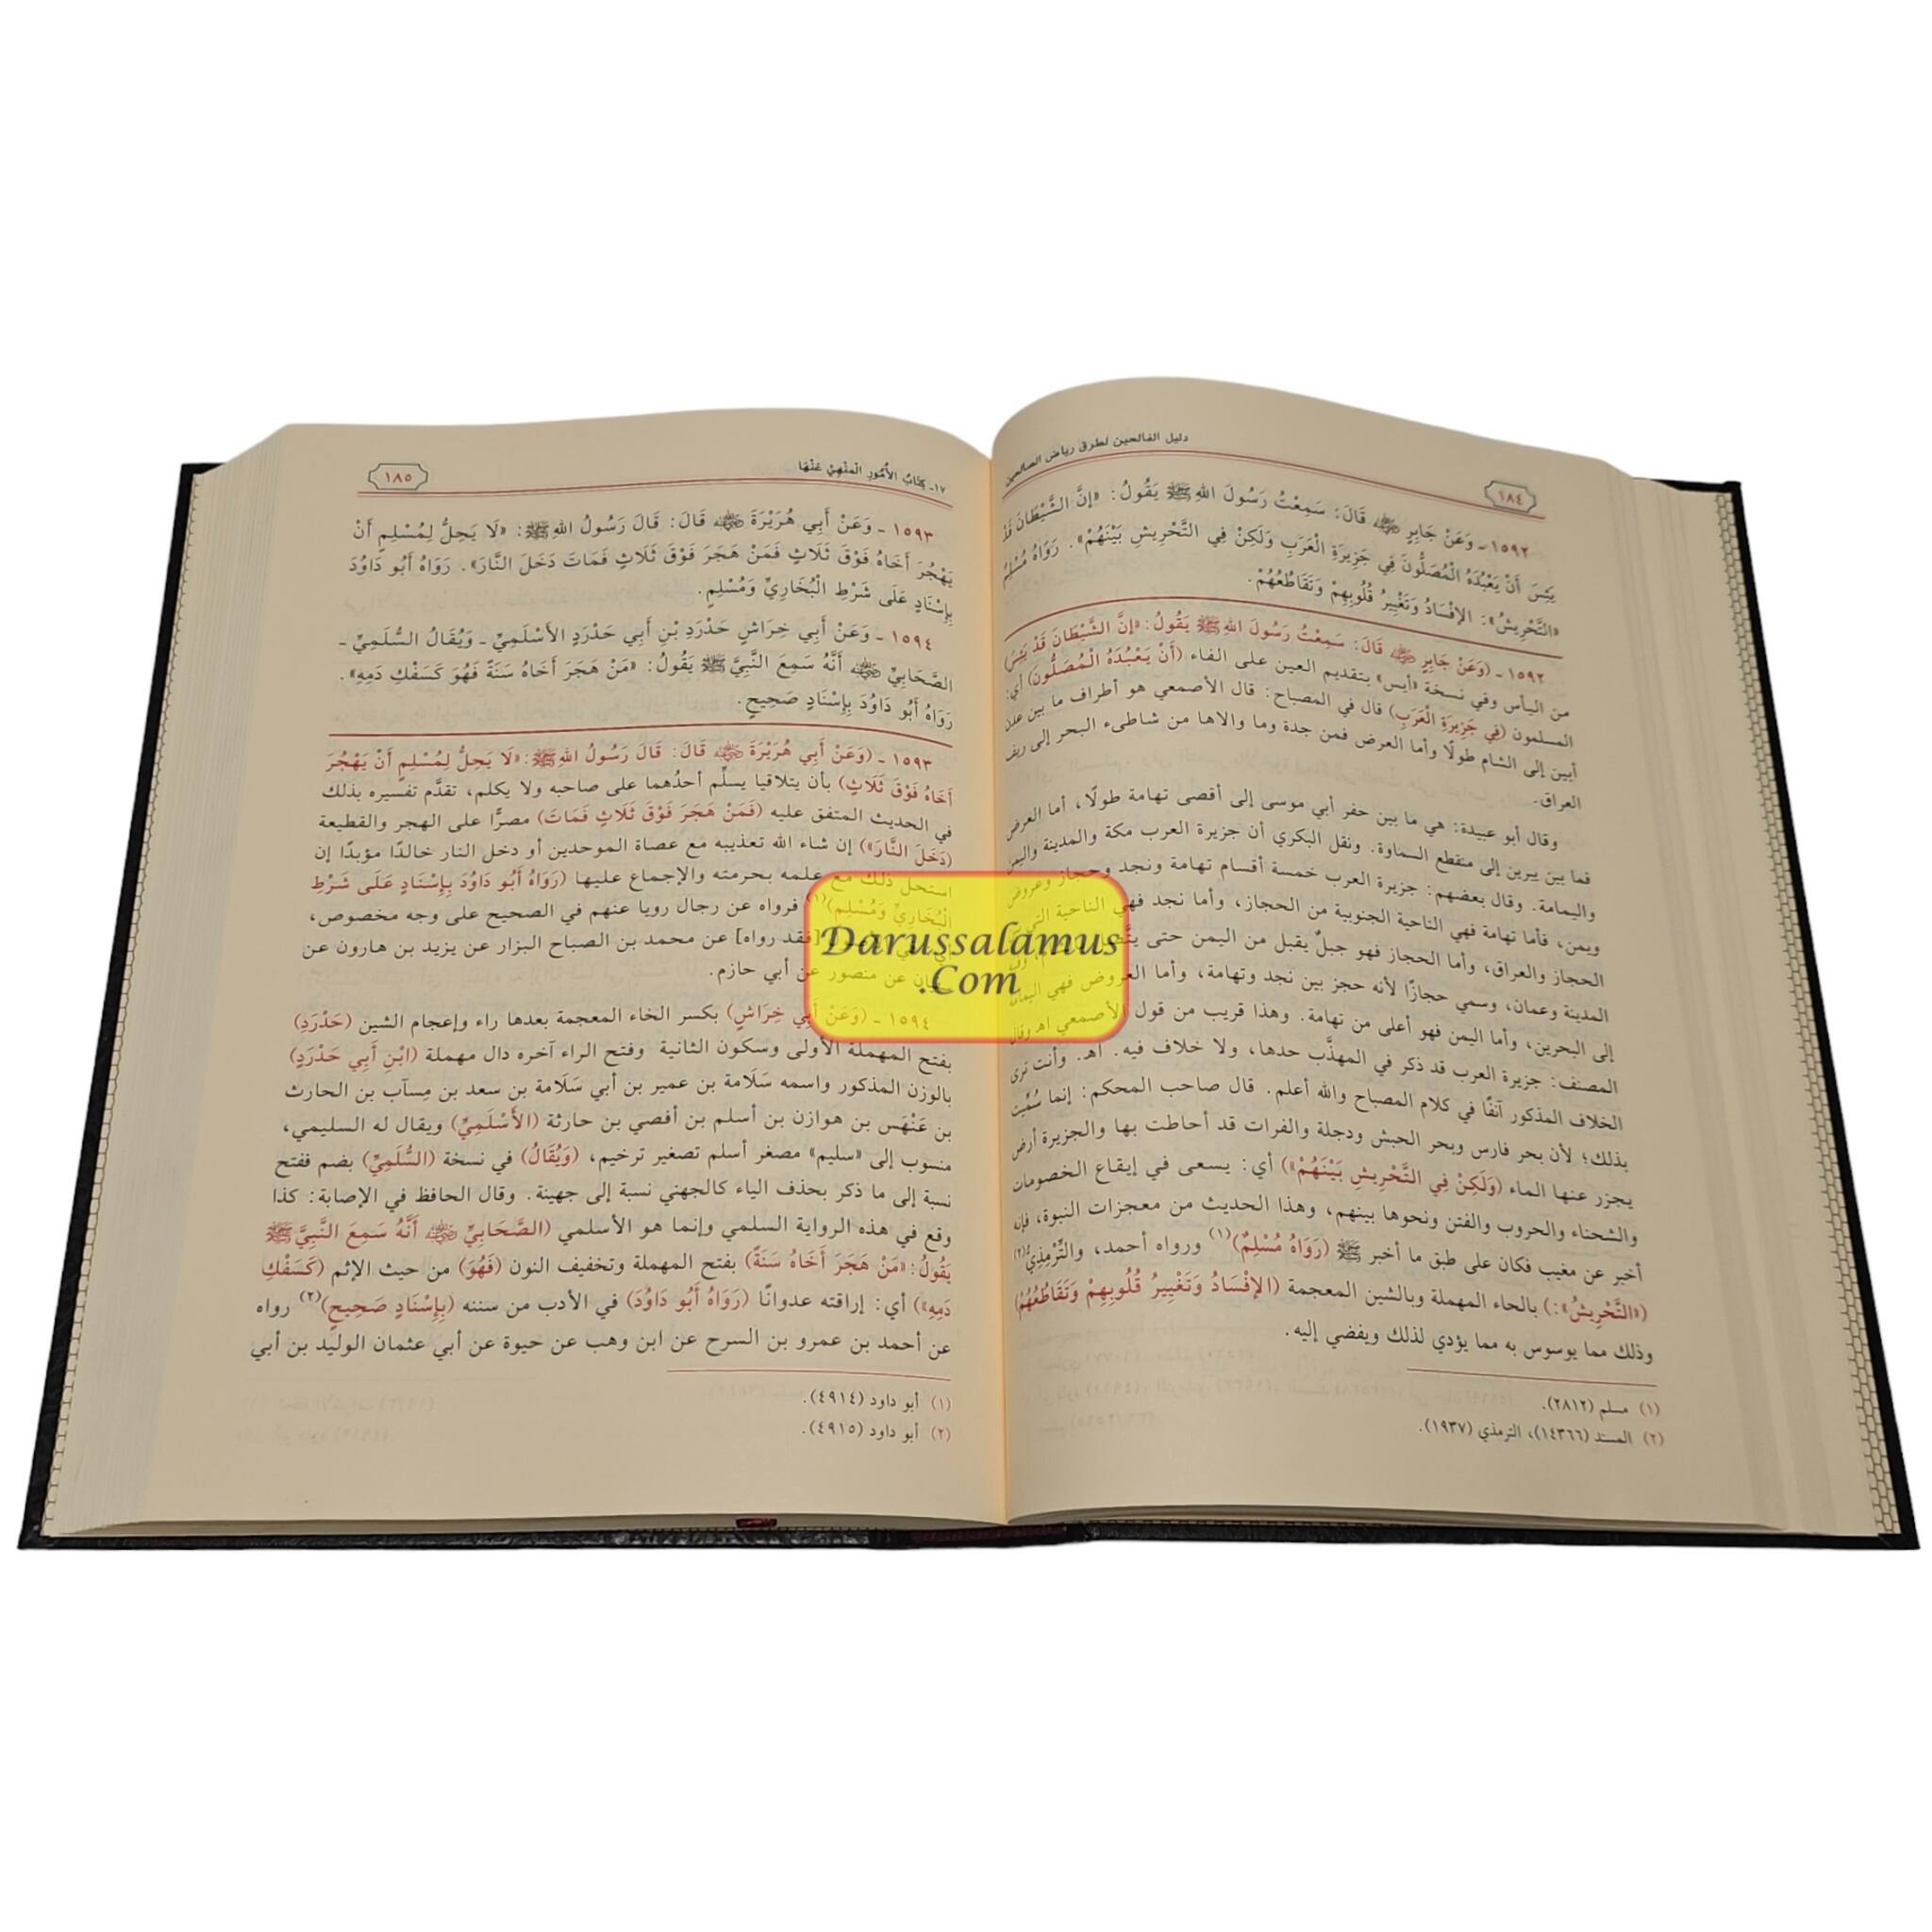 دليل الفالحين لطرق رياض الصالحين
١٨٤
١٥٩٢ - وَعَنْ جَابِرٍ ﵁ قَالَ: سَمِعْتُ رَسُولَ اللهِ ﷺ يَقُولُ: «إِنَّ الشَّيْطَانَ قَدْ
يَئِسَ أَنْ يَعْبُدَهُ الْمُصَلُّونَ فِي جَزِيرَةِ الْعَرَبِ وَلَكِنْ فِي التَّحْرِيشِ بَيْنَهُمْ». رَوَاهُ مُسْلِمٌ
«التَّحْرِيشُ»: الإِفْسَادُ وَتَغْيِيرُ قُلُوبِهِمْ وَتَقَاطُعُهُمْ.
١٥٩٢ - (وَعَنْ جَابِرٍ ﵁ قَالَ: سَمِعْتُ رَسُولَ اللهِ ﷺ يَقُولُ: «إِنَّ الشَّيْطَانَ قَدْ يَئِسَ)
من اليأس وفي نسخة «أيس» بتقديم العين على الفاء (أَنْ يَعْبُدَهُ الْمُصَلُّونَ) أي:
المسلمون (فِي جَزِيرَةِ الْعَرَبِ) قال في المصباح: قال الأصمعي هو أطراف ما بين عدن
أبين إلى الشام طولًا وأما العرض فمن جدة وما والاها من شاطىء البحر إلى ريف
العراق.
وقال أبو عبيدة: هي ما بين حفر أبي موسى إلى أقصى تهامة طولًا، أما العرض
فما بين يبرين إلى منقطع السماوة. ونقل البكري أن جزيرة العرب مكة والمدينة واليمن
واليمامة. وقال بعضهم: جزيرة العرب خمسة أقسام تهامة ونجد وحجاز وعروض
ويمن، فأما تهامة فهي الناحية الجنوبية من الحجاز، وأما نجد فهي الناحية التي
الحجاز والعراق، وأما الحجاز فهو جبلٌ يقبل من اليمن حتى
المدينة وعمان، وسمي حجازًا لأنه حجز بين نجد وتهامة، وأما العروض فهي اليمامة
إلى البحرين، وأما اليمن فهو أعلى من تهامة. وهذا قريب من قول الأصمعي اهـ وقال
المصنف: جزيرة العرب قد ذكر في المهذَّب حدها، ولا خلاف فيه. اهـ. وأنت ترى
الخلاف المذكور آنفًا في كلام المصباح والله أعلم. قال صاحب المحكم: إنما سُمِّيت
بذلك؛ لأن بحر فارس وبحر الحبش ودجلة والفرات قد أحاطت بها والجزيرة أرض
يجزر عنها الماء (وَلَكِنْ فِي التَّحْرِيشِ بَيْنَهُمْ») أي: يسعى في إيقاع الخصومات
والشحناء والحروب والفتن ونحوها بينهم، وهذا الحديث من معجزات النبوة، فإنه
أخبر عن مغيب فكان على طبق ما أخبر ﷺ (رَوَاهُ مُسْلِمٌ)(١) ورواه أحمد، والتِّرْمِذِيُّ(٢)
(«التَّحْرِيشُ»:) بالحاء المهملة وبالشين المعجمة (الإِفْسَادُ وَتَغْيِيرُ قُلُوبِهِمْ وَتَقَاطُعُهُمْ)
وذلك مما يوسوس به مما يؤدي لذلك ويفضي إليه.
(١) مسلم (٢٨١٢).
(٢) المسند (١٤٣٦٦)، الترمذي (١٩٣٧).
١٧- كِتَابُ الأُمُورِ الْمَنْهِيِّ عَنْهَا
١٨٥
١٥٩٣ - وَعَنْ أَبِي هُرَيْرَةَ ﵁ قَالَ: قَالَ رَسُولُ اللهِ ﷺ: «لَا يَحِلُّ لِمُسْلِمٍ أَنْ
يَهْجُرَ أَخَاهُ فَوْقَ ثَلَاثٍ فَمَنْ هَجَرَ فَوْقَ ثَلَاثٍ فَمَاتَ دَخَلَ النَّارَ». رَوَاهُ أَبُو دَاوُدَ
بِإِسْنَادٍ عَلَى شَرْطِ الْبُخَارِيِّ وَمُسْلِمٍ.
١٥٩٤ - وَعَنْ أَبِي خِرَاشٍ حَدْرَدِ بْنِ أَبِي حَدْرَدٍ الأَسْلَمِيِّ - وَيُقَالُ السُّلَمِيِّ -
الصَّحَابِيِّ ﵁ أَنَّهُ سَمِعَ النَّبِيَّ ﷺ يَقُولُ: «مَنْ هَجَرَ أَخَاهُ سَنَةً فَهُوَ كَسَفْكِ دَمِهِ».
رَوَاهُ أَبُو دَاوُدَ بِإِسْنَادٍ صَحِيحٍ.
١٥٩٣ - (وَعَنْ أَبِي هُرَيْرَةَ ﵁ قَالَ: قَالَ رَسُولُ اللهِ ﷺ: «لَا يَحِلُّ لِمُسْلِمٍ أَنْ يَهْجُرَ
أَخَاهُ فَوْقَ ثَلَاثٍ) بأن يتلاقيا يسلِّم أحدُهما على صاحبه ولا يكلم، تقدَّم تفسيره بذلك
في الحديث المتفق عليه (فَمَنْ هَجَرَ فَوْقَ ثَلَاثٍ فَمَاتَ) مصرًّا على الهجر والقطيعة
(دَخَلَ النَّارَ») إن شاء الله تعذيبه مع عصاة الموحدين أو دخل النار خالدًا مؤبدًا إن
استحل ذلك مع علمه بحرمته والإجماع عليها (رَوَاهُ أَبُو دَاوُدَ بِإِسْنَادٍ عَلَى شَرْطِ
الْبُخَارِيِّ وَمُسْلِمٍ)(١) فرواه عن رجال رويا عنهم في الصحيح على وجه مخصوص،
[فقد رواه] عن محمد بن الصباح البزار عن يزيد بن هارون عن
عن منصور عن أبي حازم.
١٥٩٤ - (وَعَنْ أَبِي خِرَاشٍ) بكسر الخاء المعجمة بعدها راء وإعجام الشين (حَدْرَدِ)
بفتح المهملة الأولى وسكون الثانية وفتح الراء آخره دال مهملة (ابْنِ أَبِي حَدْرَدٍ)
بالوزن المذكور واسمه سَلَامة بن عمير بن أبي سَلَامة بن سعد بن مِسآب بن الحارث
بن عَنْهَس بن هوازن بن أسلم بن أفصي بن حارثة (الأَسْلَمِيِّ) ويقال له السليمي،
منسوب إلى «سليم» مصغر أسلم تصغير ترخيم، (وَيُقَالُ) في نسخة (السُّلَمِيِّ) بضم ففتح
نسبة إلى ما ذكر بحذف الياء كالجهني نسبة إلى جهينة. وقال الحافظ في الإصابة: كذا
وقع في هذه الرواية السلمي وإنما هو الأسلمي (الصَّحَابِيِّ ﵁ أَنَّهُ سَمِعَ النَّبِيَّ ﷺ
يَقُولُ: «مَنْ هَجَرَ أَخَاهُ سَنَةً) بفتح المهملة وتخفيف النون (فَهُوَ) من حيث الإثم (كَسَفْكِ
دَمِهِ») أي: إراقته عدوانًا (رَوَاهُ أَبُو دَاوُدَ) في الأدب من سننه (بِإِسْنَادٍ صَحِيحٍ)(٢) رواه
عن أحمد بن عمرو بن السرح عن ابن وهب عن حيوة عن أبي عثمان الوليد بن أبي
(١) أبو داود (٤٩١٤).
(٢) أبو داود (٤٩١٥).
Darussalamus
.Com